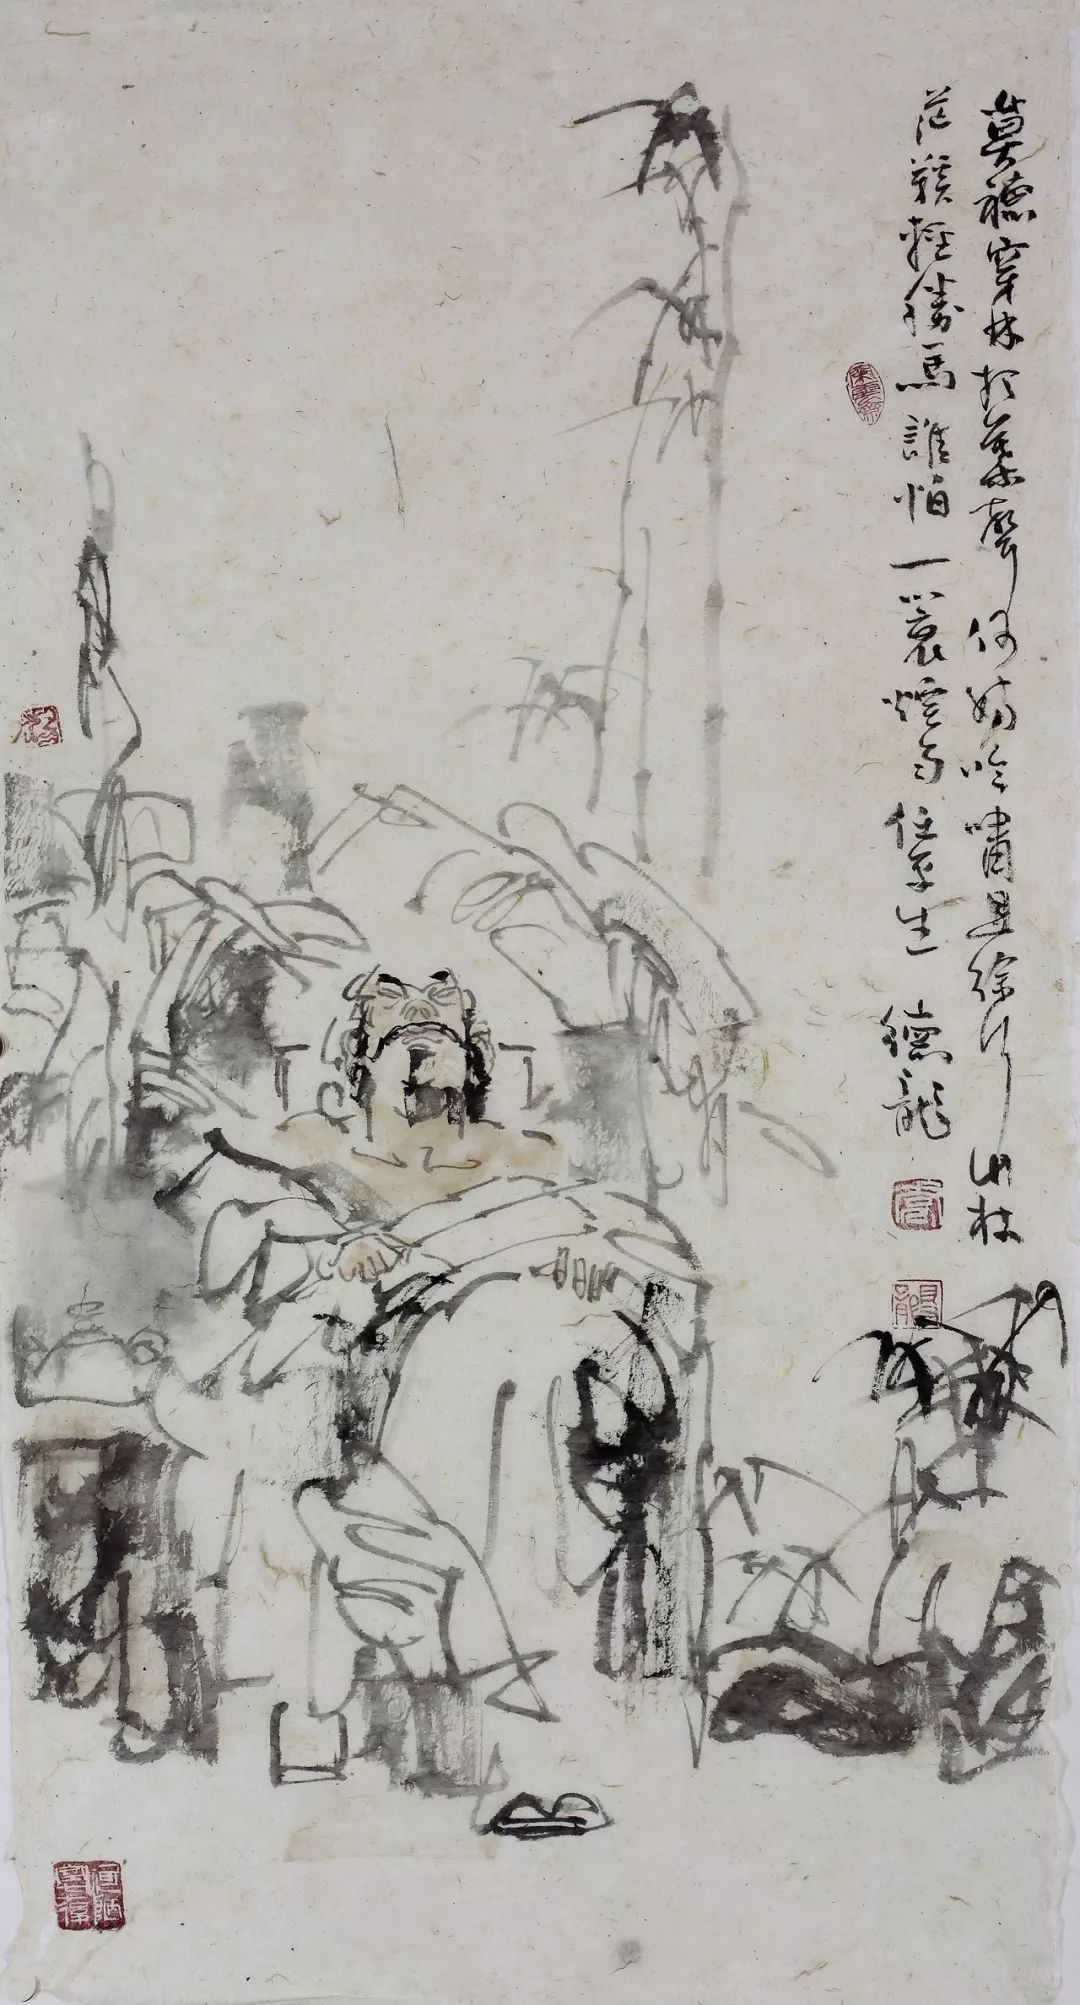 莫聽穿林打葉聲何妨吟嘯且徐行竹杖
茫鞵輕勝馬誰怕一蓑煙雨任平生 德龍